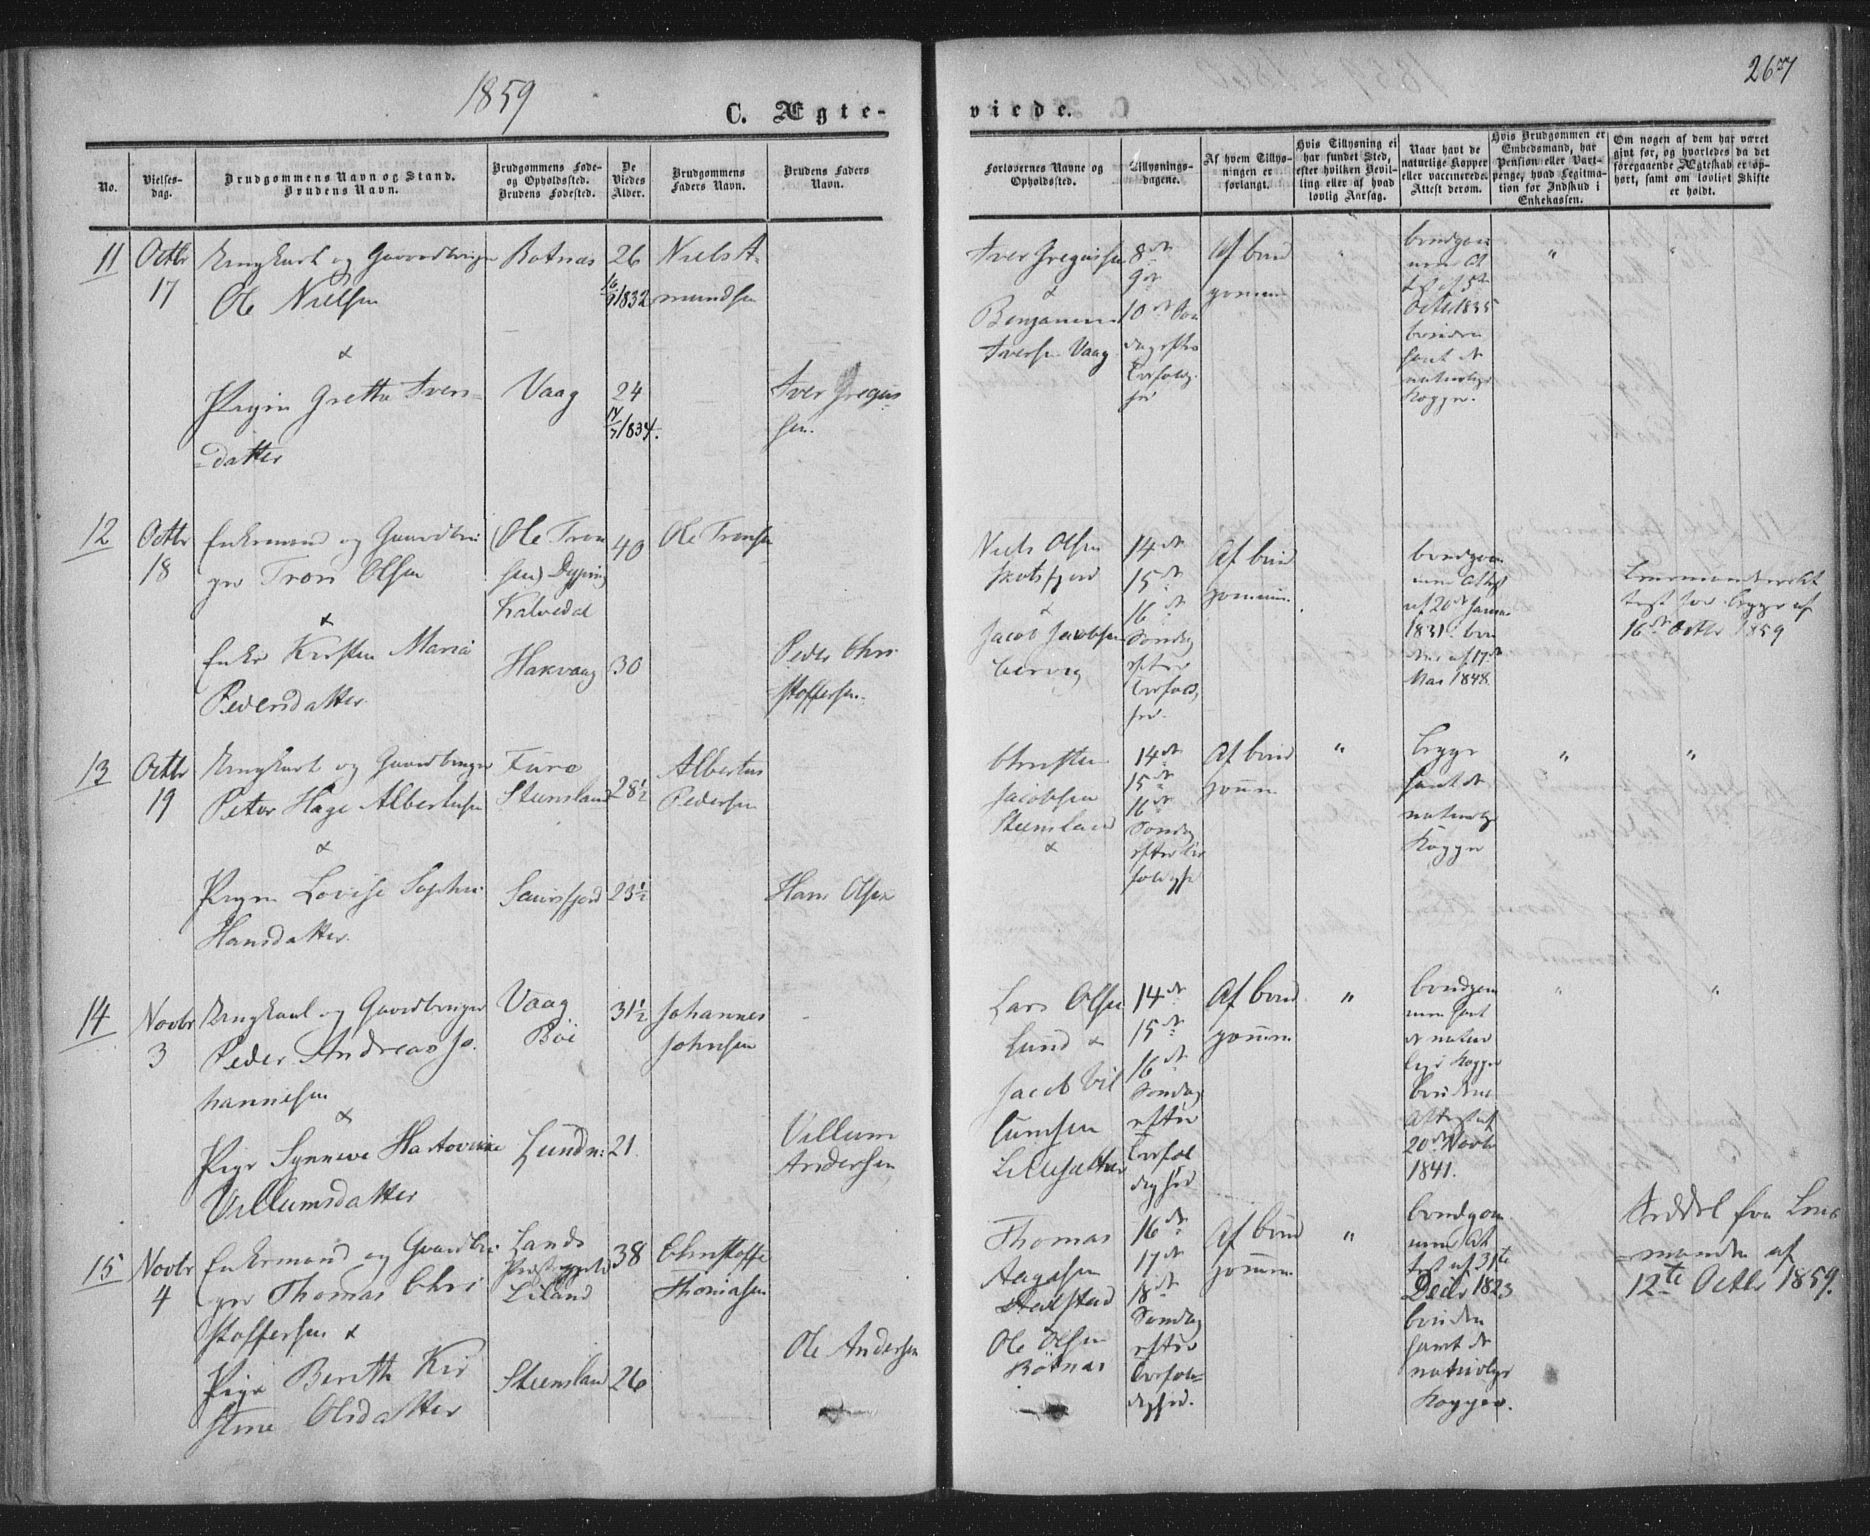 1859
267
C. Ægte-
viede.
No.
Vielses-
dag.
Brudgommens Navn og Stand.
Brudens Navn.
Brudgommens Føde-
og Opholdssted.
Brudens Fødested.
De
Viedes
Alder.
Brudgommens
Faders Navn.
Brudens Faders
Navn.
Forlovernes Navne og
Opholdssted.
Tillysnings-
dagene.
Af hvem Tillys-
ningen er
forlangt.
Hvis Tillysning ei
har fundet Sted,
efter hvilken Bevil-
ling eller af hvad
lovlig Aarsag.
Naar havt de
naturlige Kopper
eller vaccinerede.
Attest derom.
Hvis Brudgommen er
Embedsmand, har
Pension eller Vart-
penge, hvad Legitima-
tion for Indskud i
Enkekassen.
Om nogen af dem har været
gift før, og hvorledes da det
foregaaende Ægteskab er op-
hørt, samt om lovligt Skifte
er holdt.
11
Octbr
17
Ungkarl og Gaardbruger
Ole Nielsen
&
Pigen Gretha Ivers-
datter
Botnæs
Vaag
26
1832
24
1834.
Niels A-
mundsen
Iver Gregus
sen.
Iver Gregussen
&
Benjamin
Iversen Vaag
8de
9de
10de
Af brud
gommen
brudgom
men At
test af 5te
Octbr 1835
bruden
havt de
naturlige
Kopper.
12
Octbr
18
Enkemand og Gaardbru
ger Tron Olsen
&
Enke Kirsten Maria
Pedersdatter
(Ole Tron
sen) Dyping
Kalvedal
Hakvaag
40
30
Ole Tronsen
Peder Chri
stoffersen.
Niels Olsen
&
Jacob Jacobsen
14de
15de
16de
Søndag
efter
Af brud
gommen
brudgom
men Attest
af 20de Janu
1831. bru
den af 17de
Mai 1848.
Lensmandsat
test for begge af
16de Octbr 1859
13
Octbr
19
Ungkarl og Gaardbruger
Peter Hage Albertusen
&
Pigen Lovise Sophie
Hansdatter.
Furø
Steensland
28½
23½
Albertus
Pedersen
Hans Olsen
Christen
Jacobsen
Steensland
&
14de
15de
16de
Søndag
Af brud
gomm
"
begge
havt de
naturlige
Kopper
"
"
14
Novbr
3
Ungkarl og Gaardbruger
Peder Andreas Jo-
hannesen
&
Pige Synneve Hartovine
Villumsdatter
Vaag
Böe
Lund
31½
21.
Johannes
Johnsen
Villum
Andersen
Lars Olsen
Lund &
Jacob Vil
lumsen
14de
15de
16de
Søndag
efter
Af brud
gomm
"
brudgom
men havt
de natur
lige Kopper
brudens
Attest af
20de Novbr
1841.
"
"
15
Novbr
4
Enkemand og Gaardbru
ger Thomas Chri
stoffersen &
Pige Berith Kir
stine Olsdatter
Steensland
38
26
Christoffe
Thomasen
Ole Andersen
Thomas
Aagasen
&
Ole Olsen
Bötnæs
16de
17de
18de
Søndag
efter
Af brud
gomm
"
brudgom
men At
test af 31te
Decbr 1823
bruden
havt de
naturlige
Kopper.
Seddel fra Lens
manden af
12te Octbr 1859.